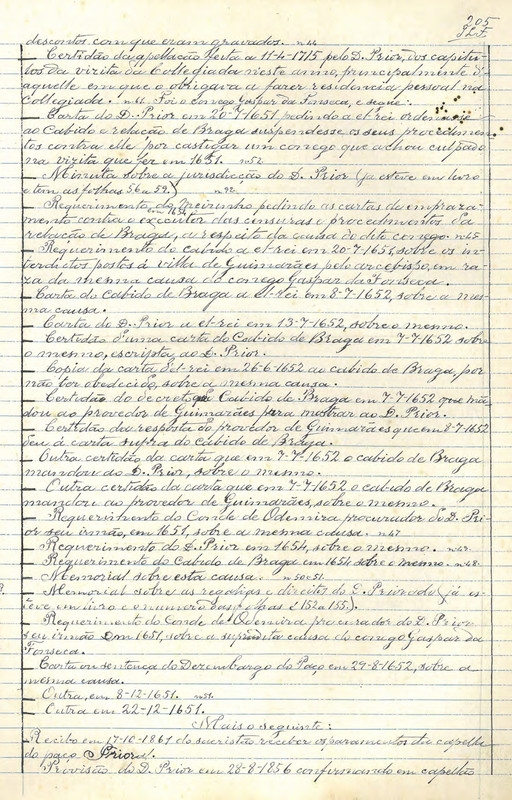 205
descontos com que eram gravados. n44
— Certidão da apellação feita a 11-4-1715 pelo D. Prior, dos capitu-
los da visita da Collegiada neste anno, principalmente d'
aquelle em que o obrigava a fazer residencia pessoal na
Collegiada. Foi o conego Gaspar da Fonseca, e segue:
— Carta do D. Prior em 20-7-1651 pedindo a el-rei ordenasse
ao Cabido e relação de Braga suspendesse os seus procedimen
tos contra elle por castigar um conego que achou culpado
na visita que fez em 1651. n52
— Minuta sobre a jurisdicção do D. Prior (ja esteve em livro
e tem as folhas 56 a 59.) n92.
— Requerimento do Meirinho pedindo as cartas de empraza-
em 1654
mento contra o executor das censuras e procedimentos da
relação de Braga, a respeito da causa do dito conego. n45
— Requerimento do cabido a el-rei em 20-7-1651, sobre os in
terdictos postos á villa de Guimarães pelo arcebispo, em ra-
zão da mesma causa do conego Gaspar da Fonseca.
— Carta do cabido de Braga a el-rei em 8-7-1652, sobre a mes-
ma causa.
— Carta do D. Prior a el-rei em 13-7-1652, sobre o mesmo.
— Certidão d'uma carta do Cabido de Braga em 7-7-1652 sobre
o mesmo, escripta ao D. Prior.
— Copia da carta d'el-rei em 26-6-1652 ao cabido de Braga, por
não ter obedecido, sobre a mesma causa.
— Certidão do decreto que Cabido de Braga em 7-7-1652 que man
dou ao provedor de Guimarães para mostrar ao D. Prior.
— Certidão da resposta do provedor de Guimarães que em 8-7-1652
deu á carta supra do cabido de Braga.
— Outra certidão da carta que em 7-7-1652 o cabido de Braga
mandou ao D. Prior, sobre o mesmo.
— Outra certidão da carta que em 7-7-1652 o cabido de Braga
mandou ao provedor de Guimarães, sobre o mesmo.
— Requerimento do Conde de Odemira procurador do D. Pri-
or seu irmão, em 1651, sobre a mesma causa. n47
— Requerimento do D. Prior em 1654, sobre o mesmo. n49.
— Requerimento do Cabido de Braga em 1654 sobre o mesmo. n48.
— Memorial sobre esta causa. n50e51.
— Memorial sobre as regalias e direitos do D. Priorado (já es-
teve em livro e 152 a 155.)
— Requerimento do Conde de Odemira procurador do D. Prior
seu irmão em 1651, sobre a supradita causa do conego Gaspar da
Fonseca.
— Carta ou sentença do Dezembargo do Paço em 29-8-1652, sobre a
mesma causa.
— Outra, em 8-12-1651.
— Outra em 22-12-1651.
Mais o seguinte:
— Recibo em 17-10-1861 do sacristão receber os paramentos da capella
do paço Prioral.
— Provisão do D. Prior em 28-8-1856 confirmando em capellão